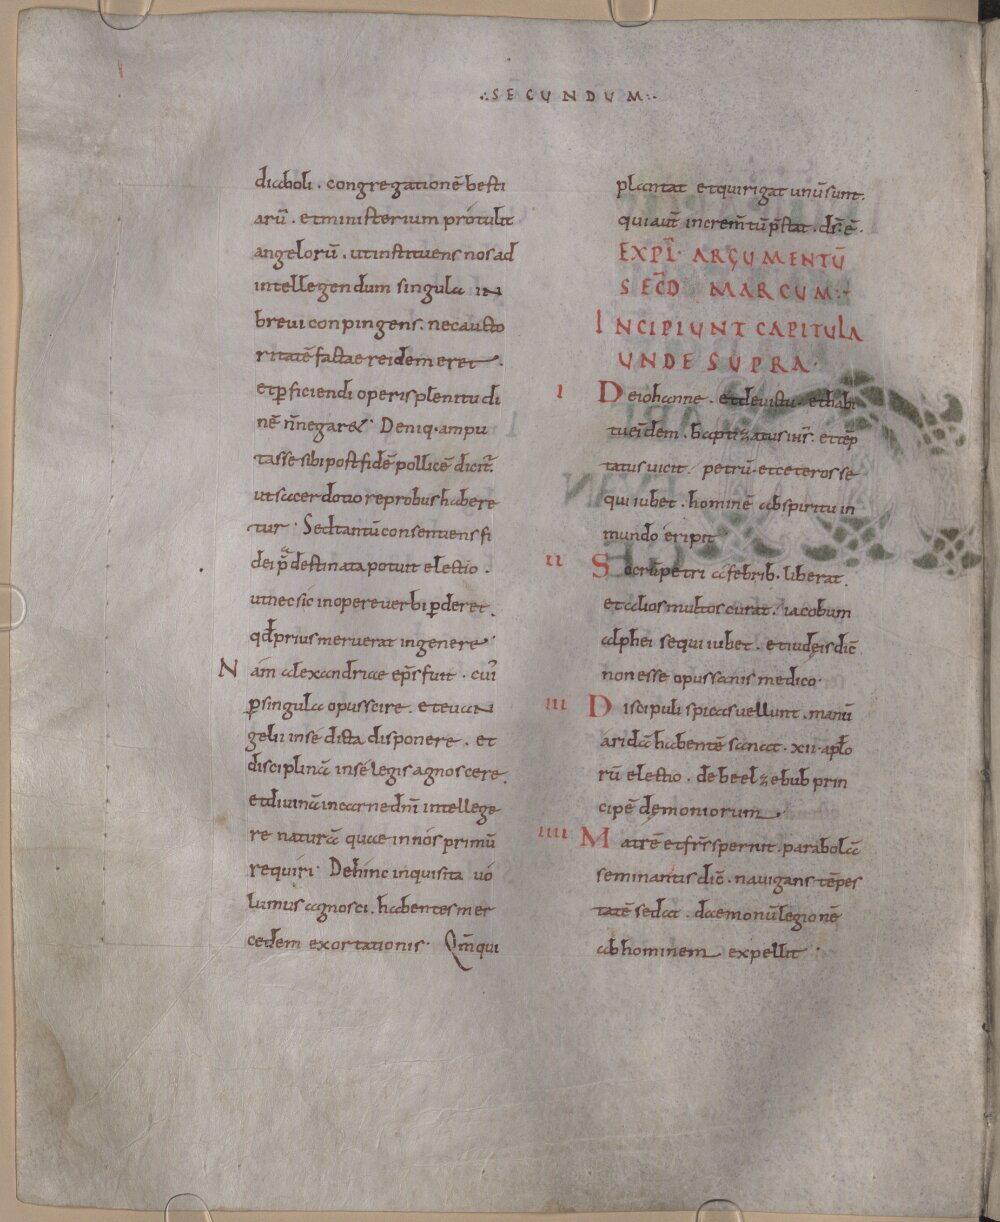 ∴SECUNDUM∴
diaboli . congregationē besti
arū . et ministerium protulit
angelorū . ut instituens nos ad
intellegendum singula in
brevi conpingens . nec aucto
ritatē factae rei demeret .
et ꝑficiendi operis plenitudi
nē n̄ negaret . Deniq· ampu
tasse sibi post fidē pollicē dicit᷑
ut sacerdotio reprobus habere
tur . Sed tantū consentiens fi
dei p̄destinata potuit electio .
ut nec sic in opere verbi ꝑderet .
qđ prius meruerat in genere
Nam alexandriae ep̄s fuit . cui᷒
ꝑ singula opus scire . et evan
gelii in se dicta disponere . et
disciplinā in se legis agnoscere .
et divinā in carne dn̄i intellege
re naturā quae in nos primū
requiri . Dehinc inquisita vo
lumus agnosci . habentes mer
cedem exortationis . Qm̄ qui
plantat et qui rigat unū sunt .
qui aut̄ increm̄tū p̄stat . dš . ē .
EXPL̄ · ARGUMENTŪ
SEC̄D MARCUM
INCIPIUNT CAPITULA
UNDE SUPRA ·
I De iohanne . et de victu . et habi
tu eidem . baptizatus iħs̄ . et tēp
tatus vicit . petrū . et ceteros se
qui iubet . hominē ab spiritu in
mundo eripit
II Socrū petri a febrib· liberat .
et alios multos curat . iacobum
alphei sequi iubet . et iudeis dic̄
non esse opus sanis medico ·
III Discipuli spicas vellunt . manū
aridā habentē sanat . xii . apl̄o
rū electio . de beelzebub prin
cipē demoniorum .
IIII Matrē et fr̄s spernit . parabolā
seminantis dic̄ . navigans tēpes
tatē sedat . daemonū legionē
ab hominem expellit .